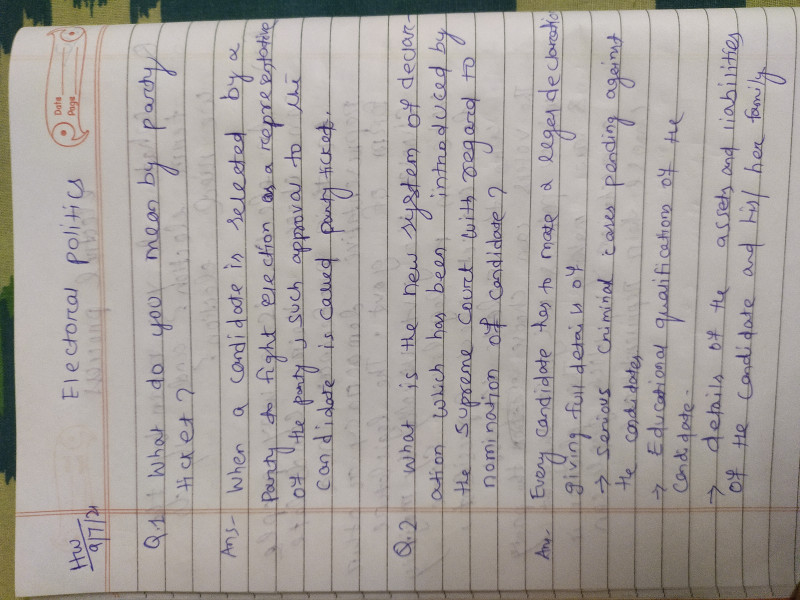 HW
9/7/21
Electoral politics
Date
Page
Q.1 What do you mean by party
ticket ?
Ans- When a candidate is selected by a
party to fight election as a representative
of the party, such approval to the
candidate is called party ticket.
Q.2 what is the new system of declar-
ation which has been introduced by
the supreme court with regard to
nomination of candidate ?
Ans- Every candidate has to make a legal declaration
giving full details of
→ serious criminal cases pending against
the candidates
→ Educational qualifications of the
candidate.
→ details of the assets and liabilities
of the candidate and his/ her family